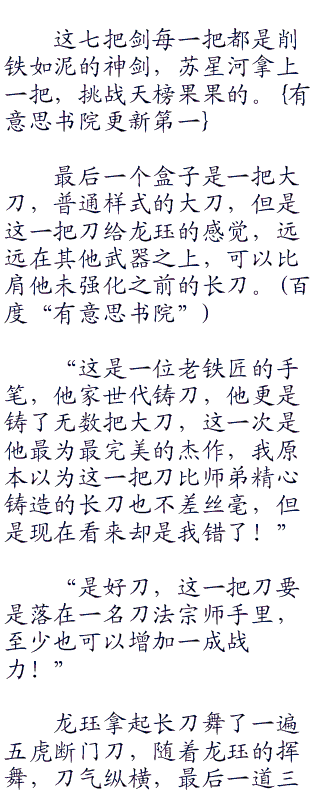 这七把剑每一把都是削
铁如泥的神剑，苏星河拿上
一把，挑战天榜果果的。{有
意思书院更新第一}
最后一个盒子是一把大
刀，普通样式的大刀，但是
这一把刀给龙珏的感觉，远
远在其他武器之上，可以比
肩他未强化之前的长刀。(百
度“有意思书院”)
“这是一位老铁匠的手
笔，他家世代铸刀，他更是
铸了无数把大刀，这一次是
他最为最完美的杰作，我原
本以为这一把刀比师弟精心
铸造的长刀也不差丝毫，但
是现在看来却是我错了！”
“是好刀，这一把刀要
是落在一名刀法宗师手里，
至少也可以增加一成战
力！”
龙珏拿起长刀舞了一遍
五虎断门刀，随着龙珏的挥
舞，刀气纵横，最后一道三